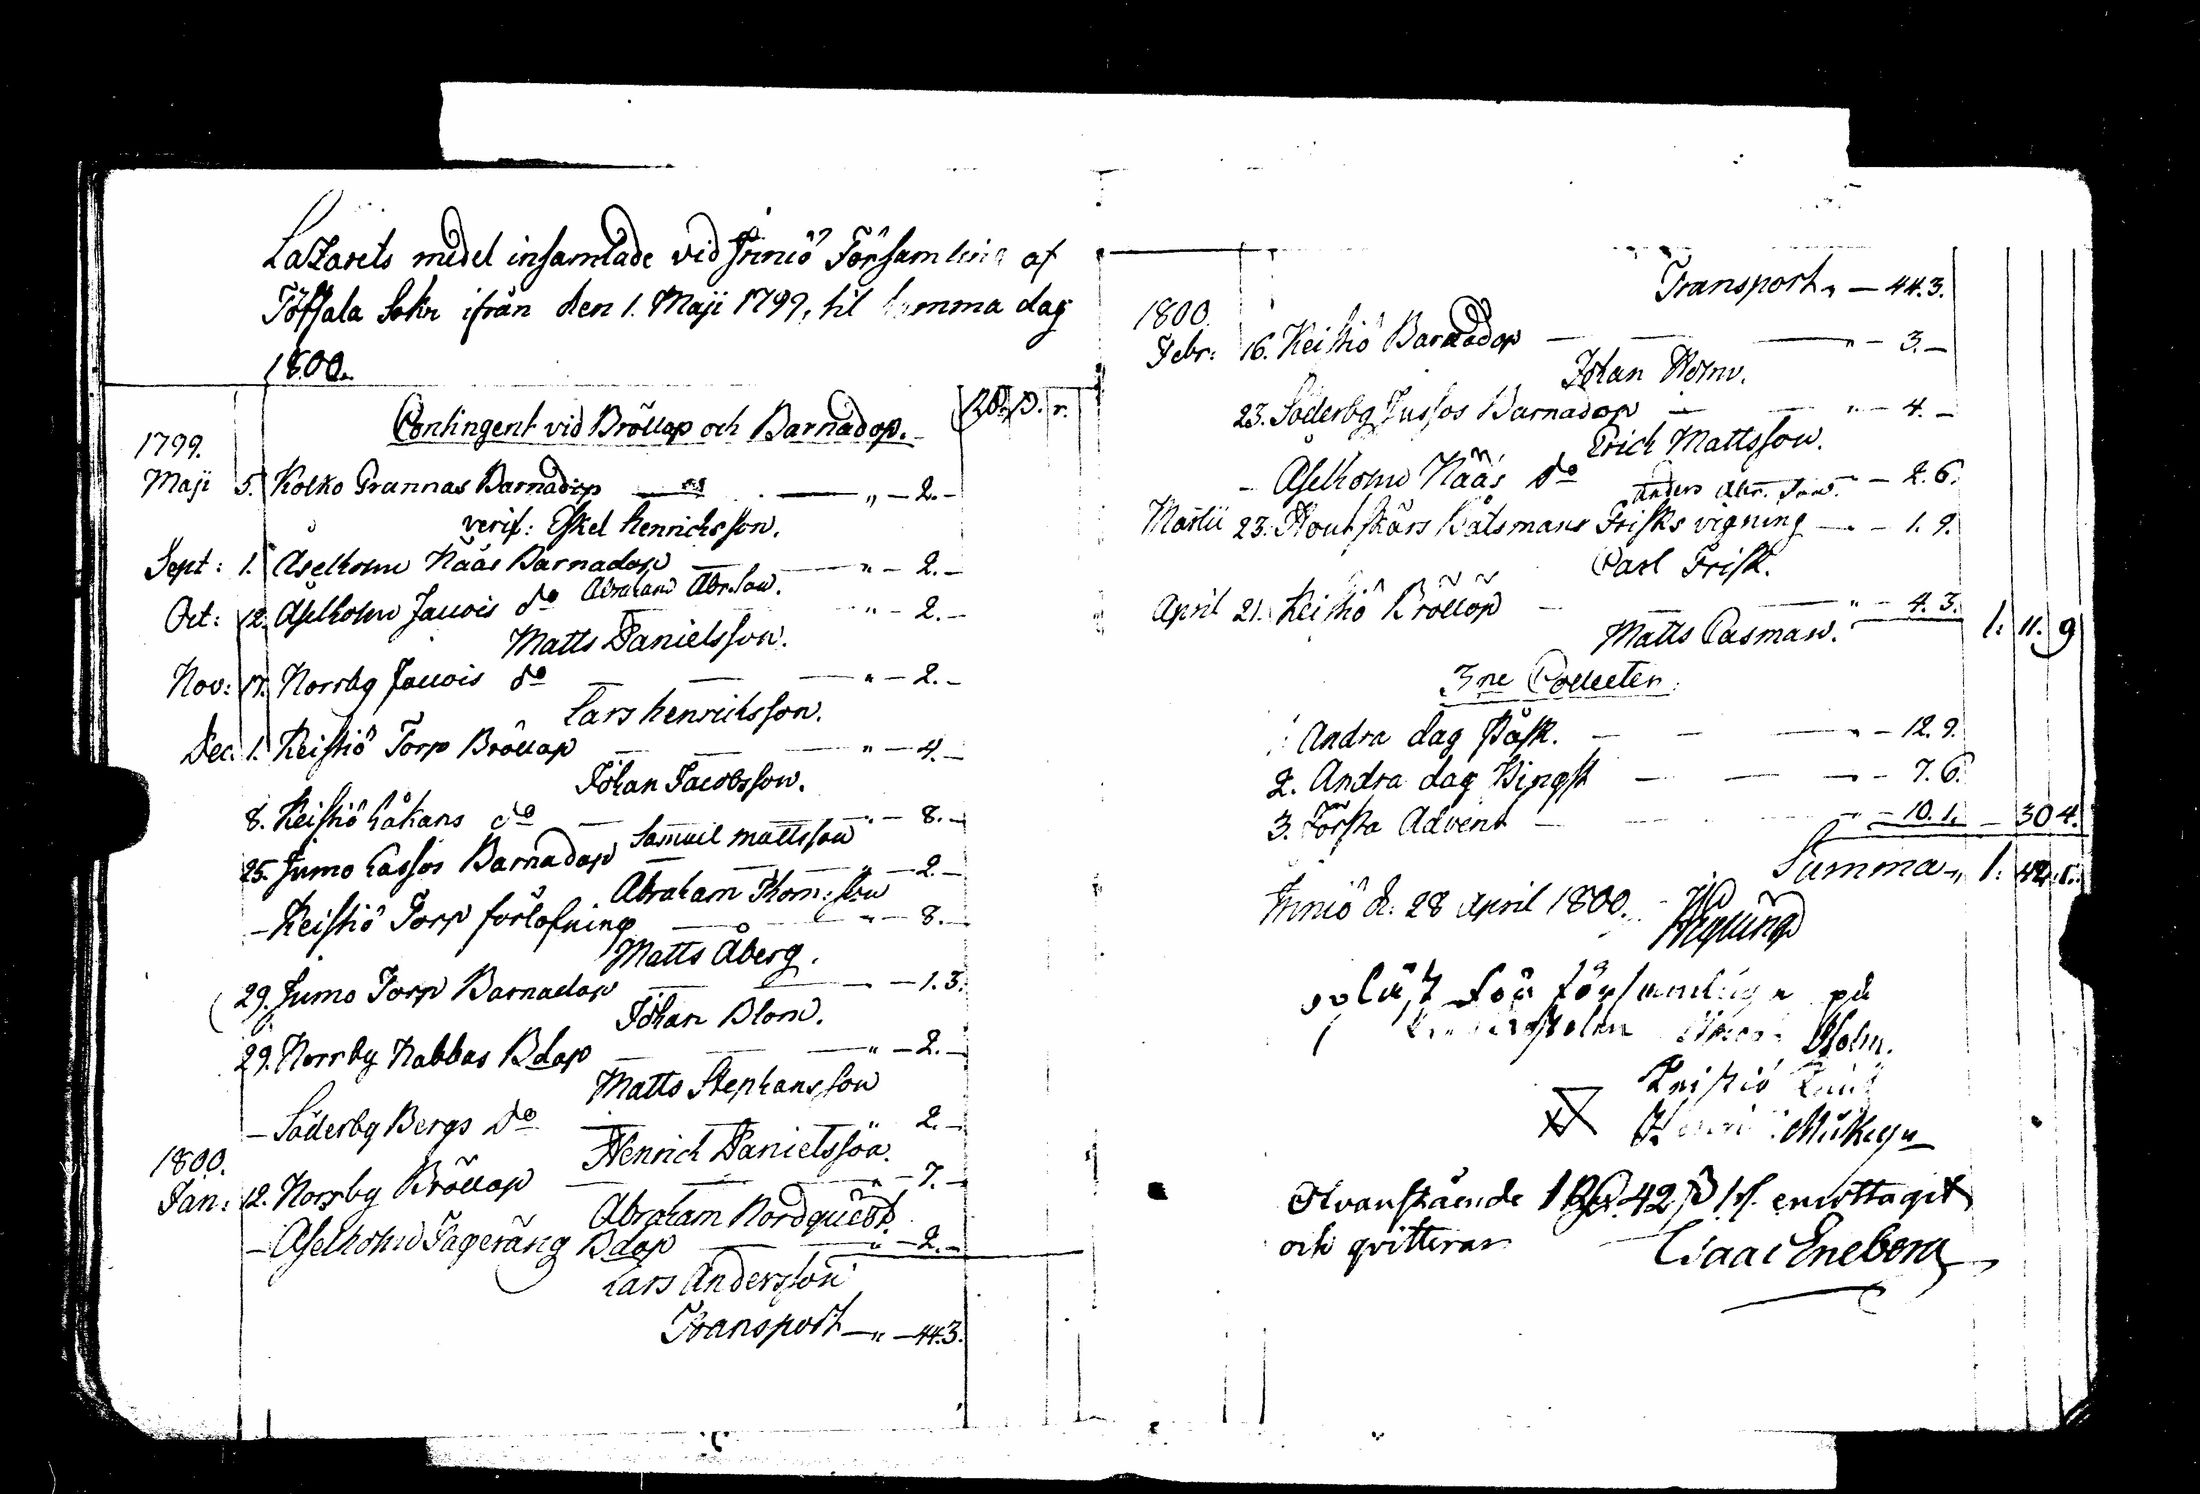 Lazarets medel insamlade vid Iniö Församling af
Töffsala Sokn ifrån den 1. Maji 1799, til samma dag
1800.
Contingent vid Bröllop och Barnadop.
1799.
Maji 5. Kolko Grannas Barnadop — — „ — 2. —
verif: Eskel Henricksson.
Sept: 1. Åselholm Nääs Barnadop — — „ — 2. —
Abraham Abr.son.
Oct: 12. Åselholm Jacois do „ — 2. —
Matts Danielsson.
Nov: 17. Norrby Jacois do — — — „ — 2. —
Lars Henricksson.
Dec. 1. Keistiö Torp Bröllop — — — „ — 4. —
Johan Jacobsson.
8. Keistiö Håkans do — — — „ — 8. —
Samuel Mattsson
25. Jumo Lassos Barnadop — — — „ — 2. —
Abraham Thom:son
— Keistiö Torp förlofning — — „ — 8. —
Matts Åberg.
29. Jumo Torp Barnadop — — — 1. 3.
Johan Blom.
29. Norrby Nabbas Bdop — — — „ — 2. —
Matts Stephansson
— Söderby Bergs do — — — „ 2. —
Henrich Danielsson.
1800.
Jan: 12. Norrby Bröllop — — — „ — 7. —
Abraham Nordquest.
— Åselholm Fageräng Bdop — — „ — 2. —
Lars Andersson
Transport — „ — 44. 3.
Transport „ — 44. 3.
1800.
Febr: 16. Keistiö Barnadop — — — „ — 3. —
Johan Holm.
23. Söderby Jussos Barnadop — — „ — 4. —
Erich Mattsson.
— Åselholm Nääs do „ — 2. 6.
Anders Abr. Son.
Martii 23. Houtskärs Båtsmans Frisks vigning — „ — 1. 9.
Carl Frisk.
April 21. Keistiö Bröllop — — — „ — 4. 3.
Matts Casman. 1: 11. 9
3ne Collecter.
1. Andra dag Påsk. — — — „ — 12. 9.
2. Andra dag Pingst — — — — 7. 6.
3. Första Advent — „ — 10. 1. — 30 4.
Summa „ 1: 42. 1.
Iniö d: 28 April 1800.
på
Holm.
Keistiö
Ofvanstående 1 Rd. 42 ß 1 rs. emottagit
och qvitterar Isaac Eneberg